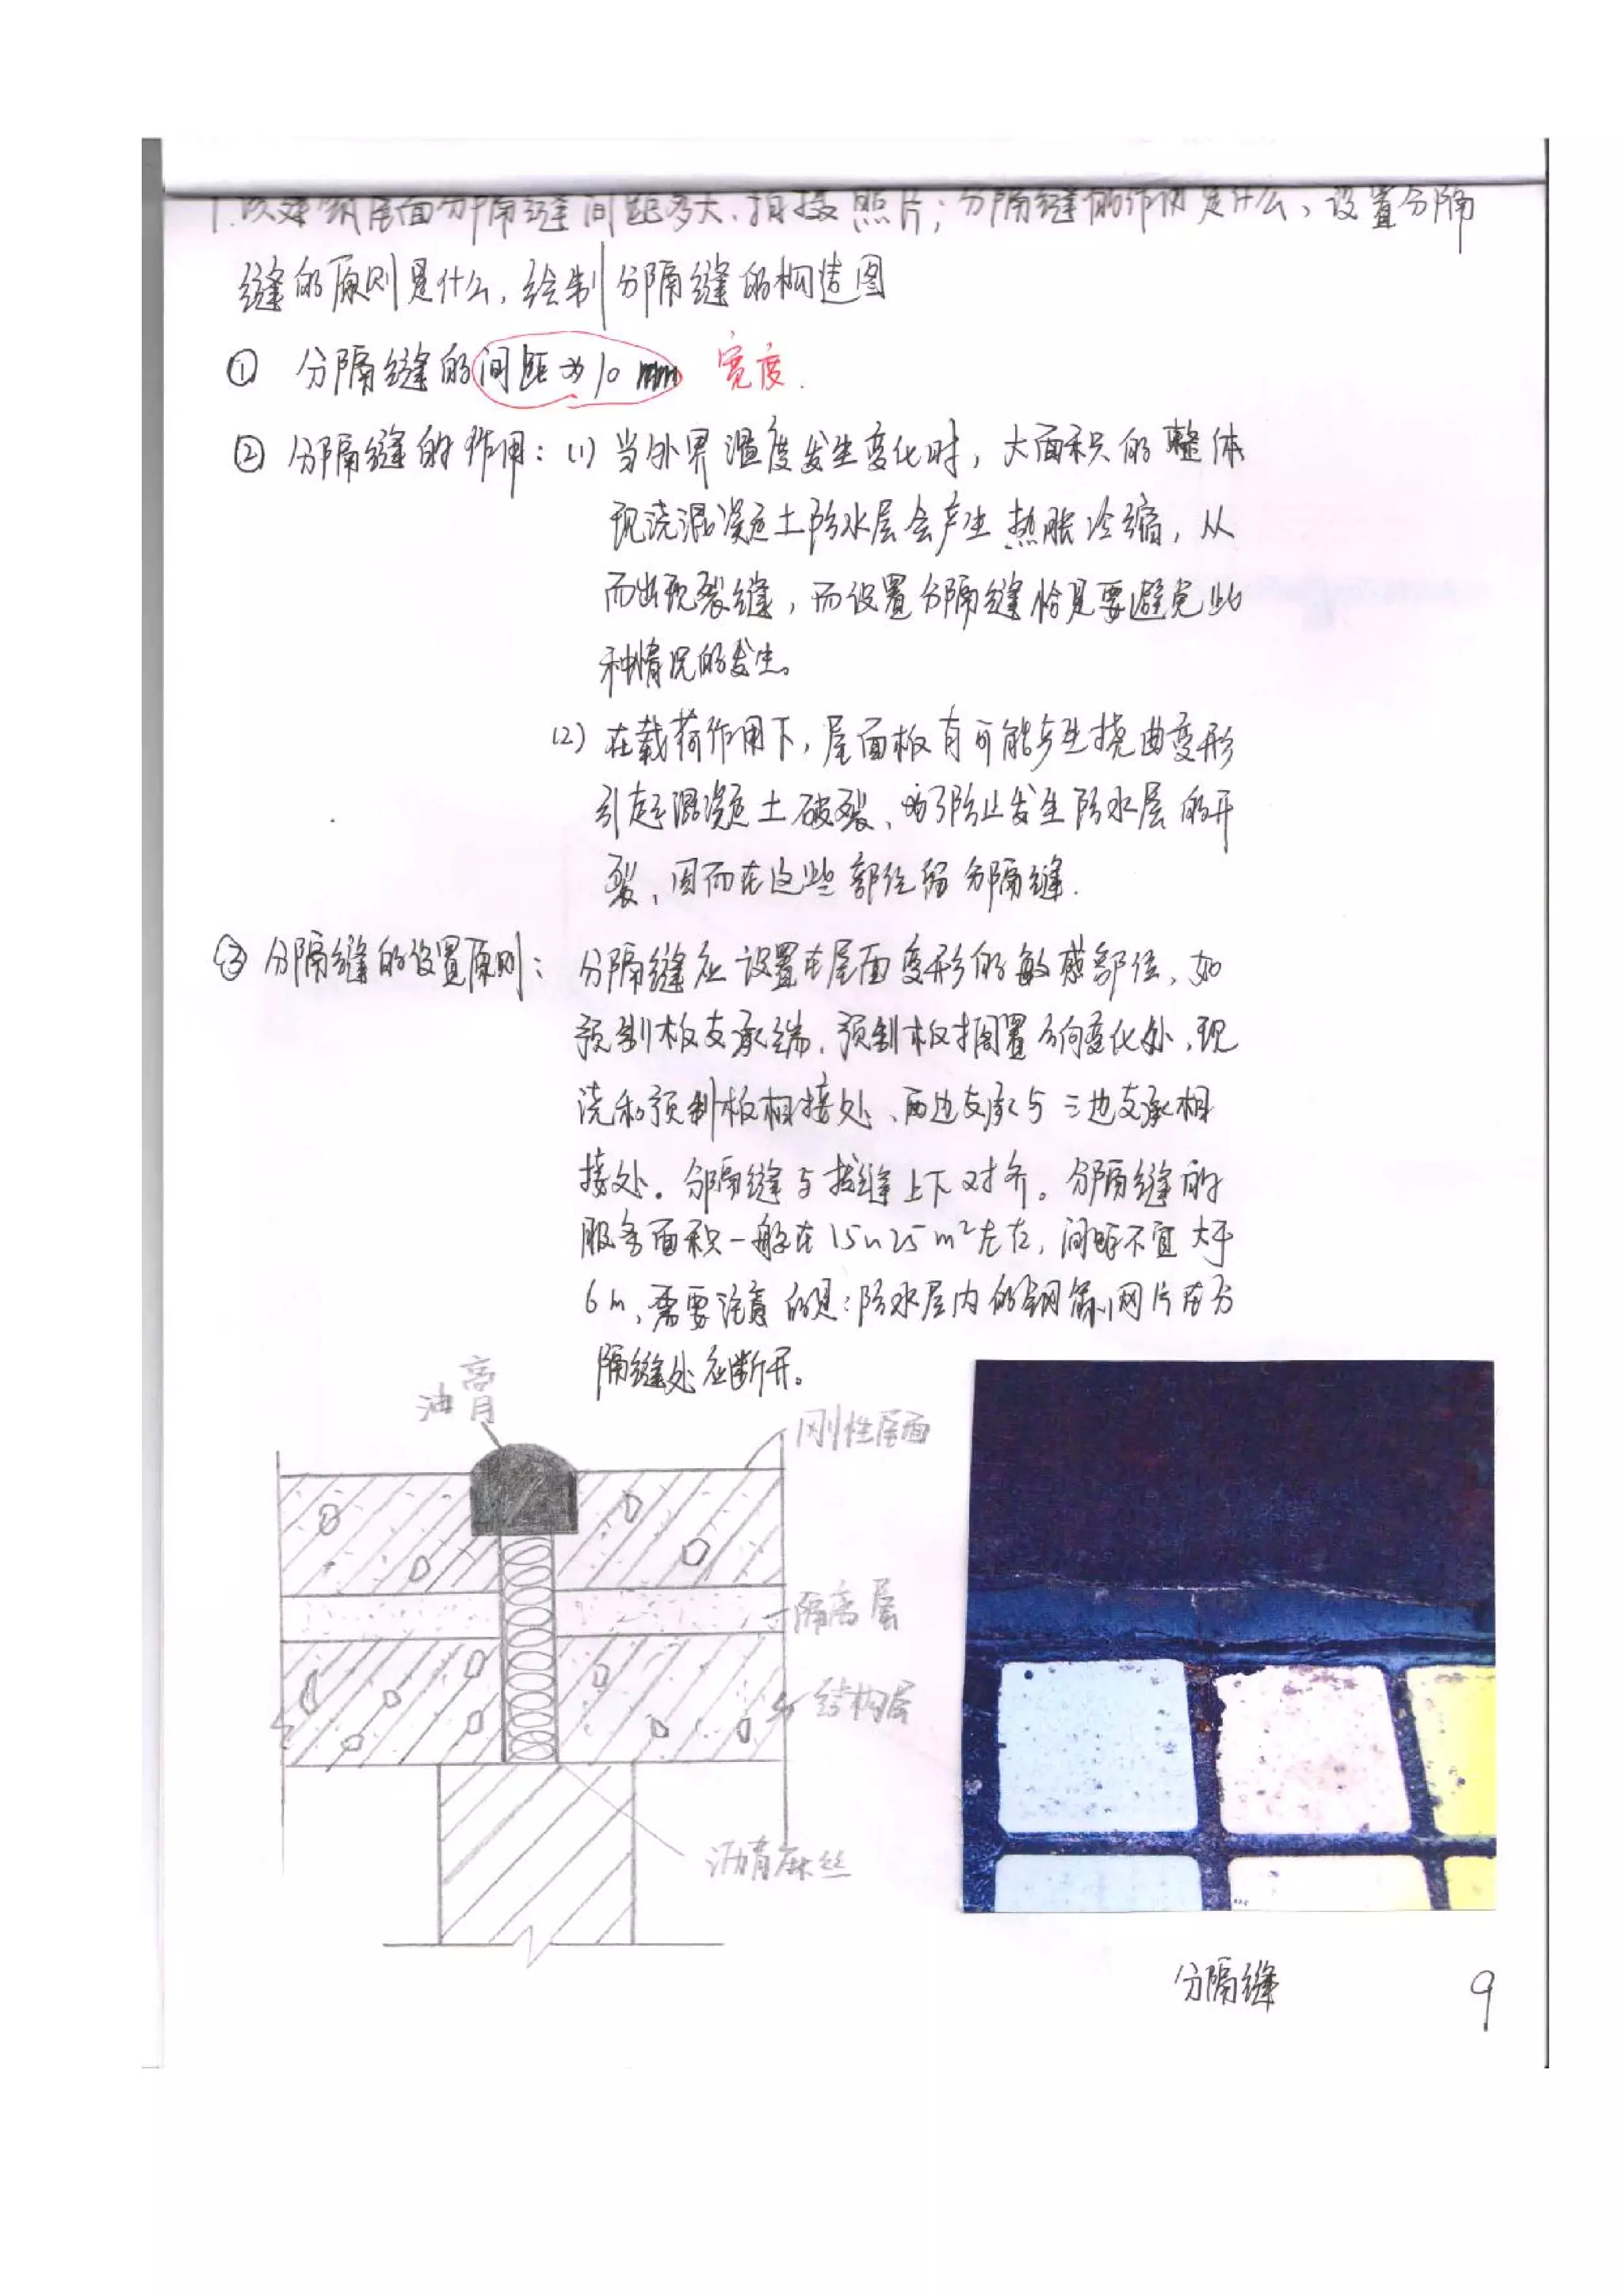 1.该建筑屋面分隔缝间距多大、拍摄照片;分隔缝的作用是什么、设置分隔
缝的原则是什么,绘制分隔缝的构造图
① 分隔缝的间距为10mm 宽度.
② 分隔缝的作用:(1)当外界温度发生变化时,大面积的整体
现浇混凝土防水层会产生热胀冷缩,从
而出现裂缝,而设置分隔缝恰是要避免此
种情况的发生。
(2)在载荷作用下,屋面板有可能产生挠曲变形
引起混凝土破裂、为了防止发生防水层的开
裂,因而在这些部位留分隔缝.
③ 分隔缝的设置原则:分隔缝应设置在屋面变形的敏感部位,如
预制板支承端、预制板搁置方向变化处、现
浇和预制板相接处、两边支承与三边支承相
接处。分隔缝与接缝上下对齐。分隔缝的
服务面积一般在15~25m²左右,间距不宜大于
6m,需要注意的是:防水层内的钢筋网片在分
隔缝处应断开。
油膏
刚性屋面
隔离层
结构层
沥青麻丝
分隔缝
9